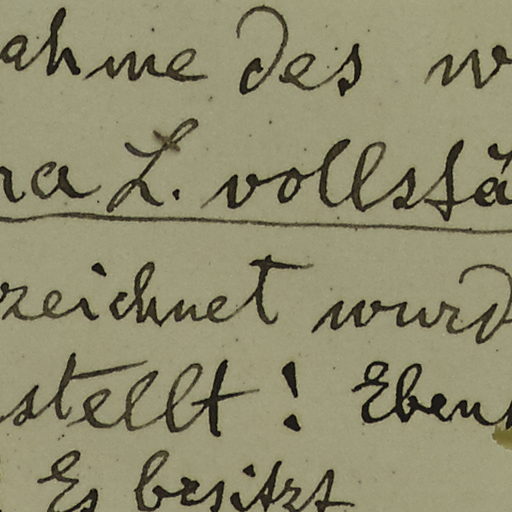 ahme des w
ra L. vollstä
zeichnet wurd
stellt! Ebens
Es besitzt